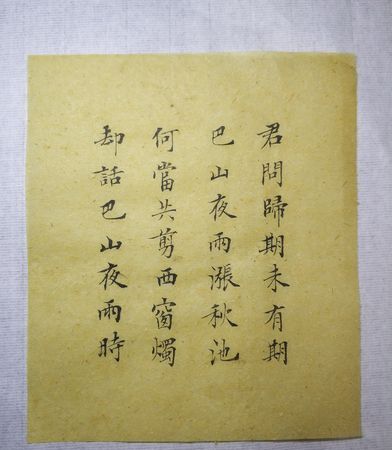 君問歸期未有期
巴山夜雨漲秋池
何當共剪西窗燭
却話巴山夜雨時